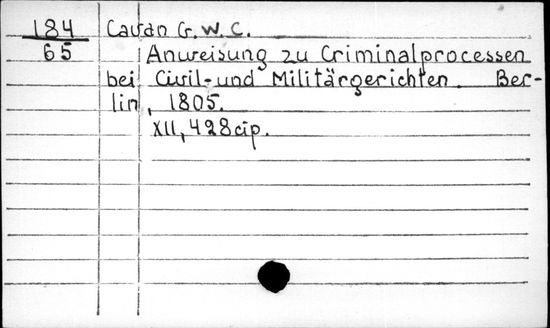 184 Cavan G. W. C.
65 Anweisung zu Criminalprocessen
bei Civil- und Militärgerichten. Ber-
lin, 1805.
XII, 428 cip.